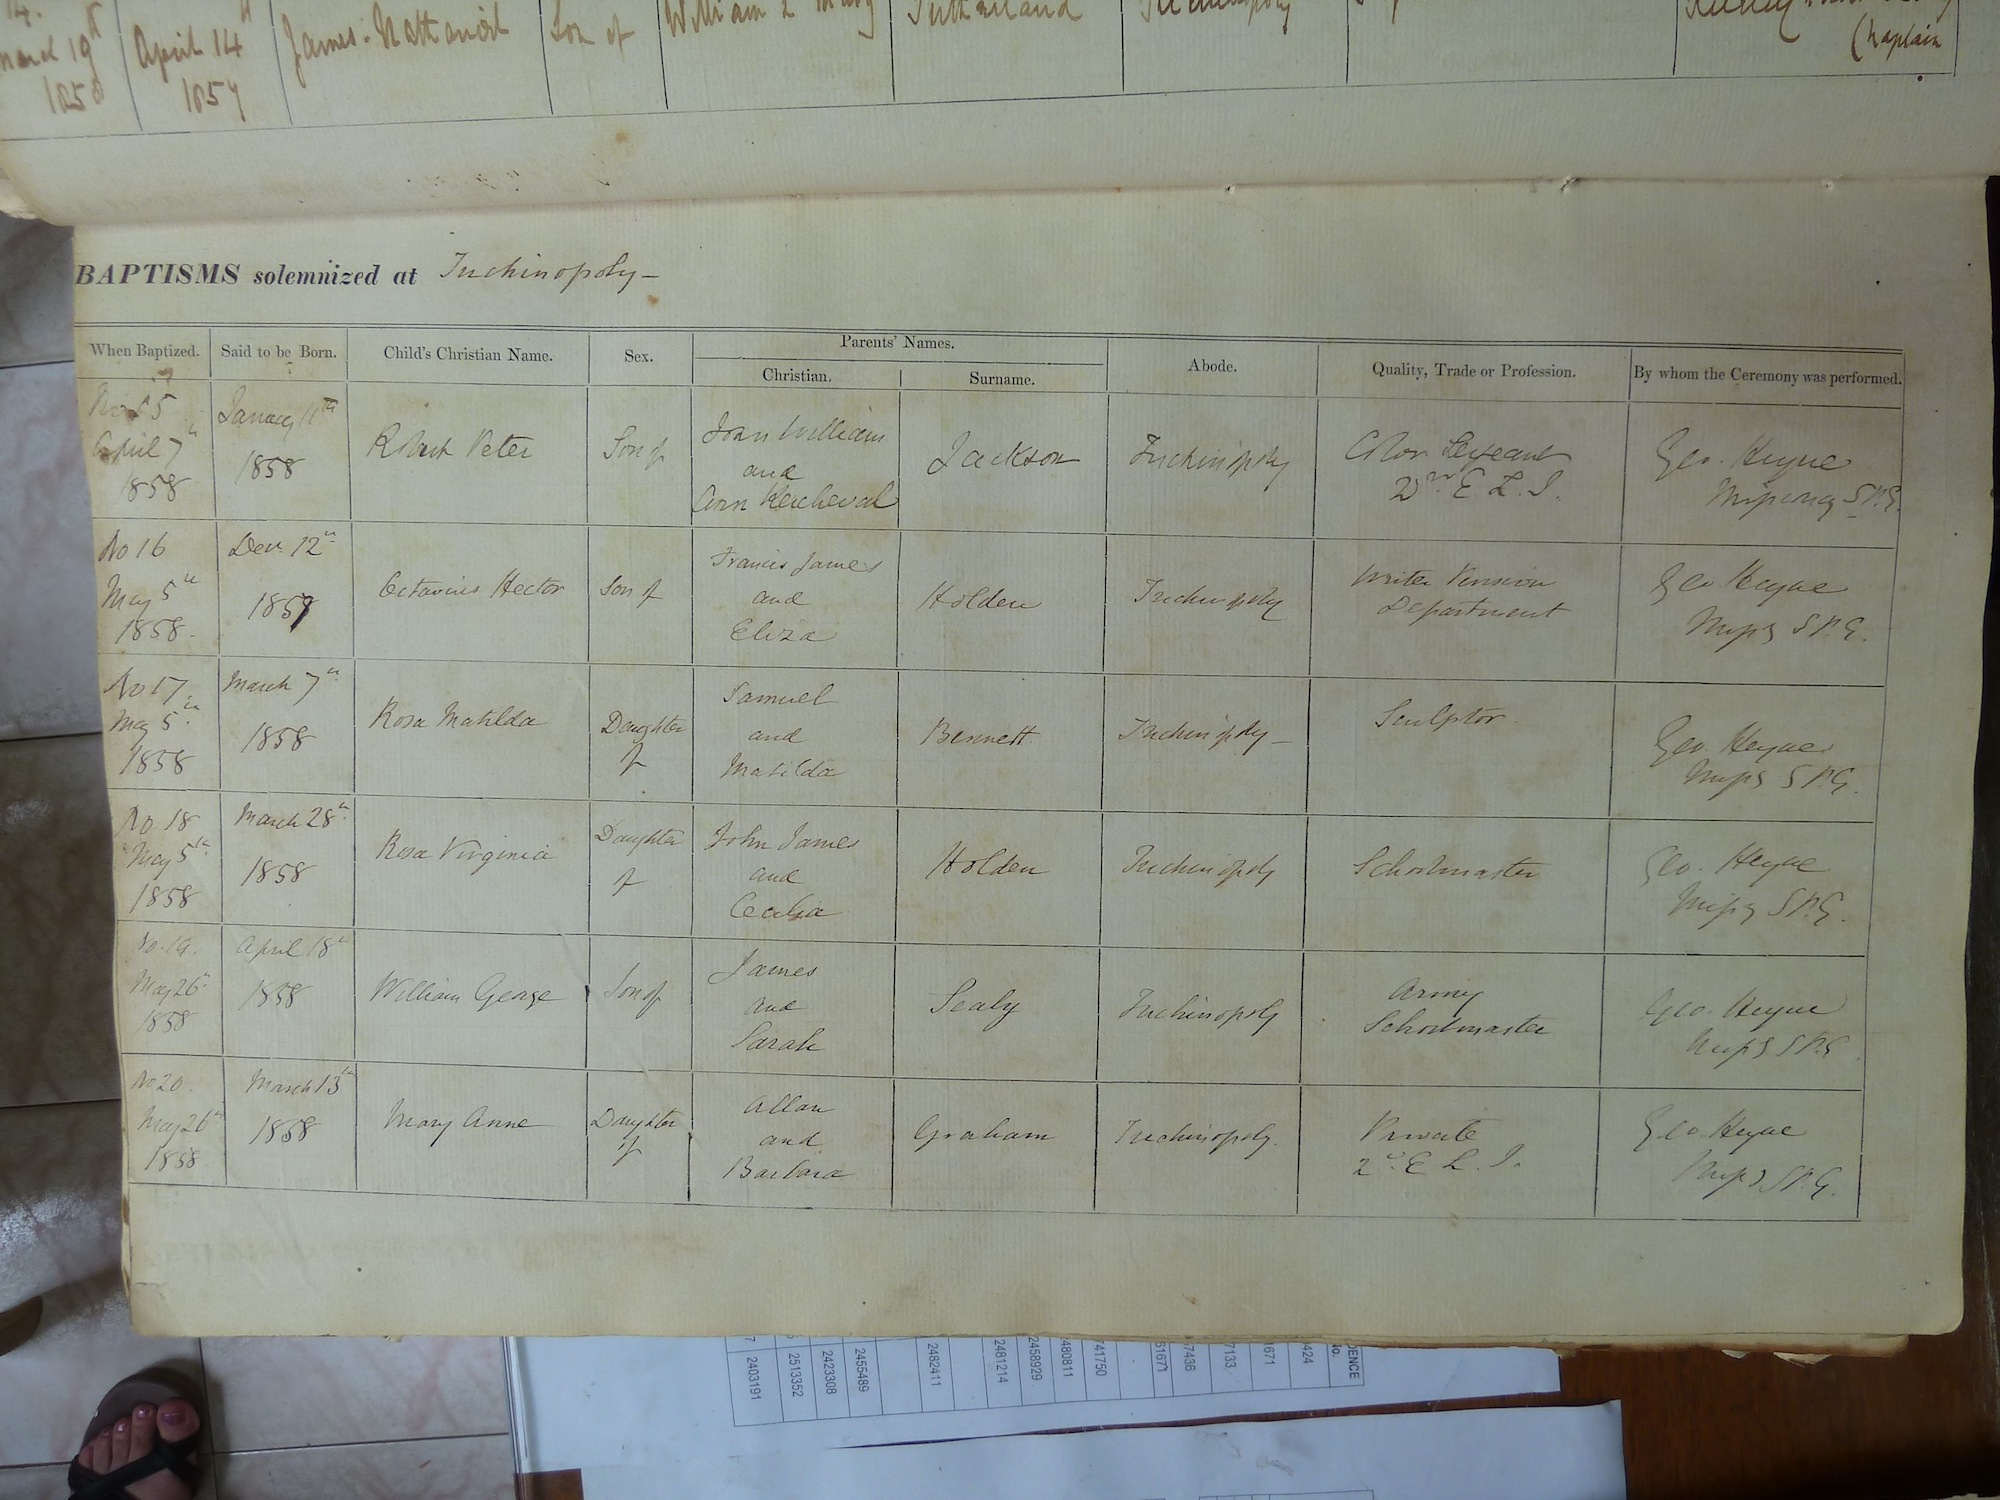 March 19th
1858
April 14th
1857
James Nathaniel
Son of
William & Mary
Sutherland
Trichinopoly
Chaplain
BAPTISMS solemnized at Trichinopoly—
When Baptized.
Said to be Born.
Child's Christian Name.
Sex.
Parents' Names.
Christian.
Surname.
Abode.
Quality, Trade or Profession.
By whom the Ceremony was performed.
No 15
April 7th
1858
January 11th
1858
Robert Peter
Son of
John William
and
Ann
Jackson
Trichinopoly
Color Sergeant
2nd E L. I.
Geo. Heyne
Missionary S.P.G.
No 16
May 5th
1858.
Decr 12th
1857
Octavius Hector
Son of
Francis James
and
Eliza
Holden
Trichinopoly
Writer Pension
Department
Geo Heyne
Missy S P. G.
No 17.
May 5th
1858
March 7th
1858
Rosa Matilda
Daughter
of
Samuel
and
Matilda
Bennett
Trichinopoly—
Sculptor.
Geo. Heyne
Missy S P. G.
No. 18
May 5th
1858
March 28th
1858
Rosa Virginia
Daughter
of
John James
and
Cecilia
Holden
Trichinopoly
Schoolmaster
Geo. Heyne
Missy S P. G.
No. 19.
May 26th
1858
April 18th
1858
William George
Son of
James
and
Sarah
Sealy
Trichinopoly
Army
Schoolmaster
Geo. Heyne
Missy S P. G.
No 20
May 26th
1858
March 13th
1858
Mary Anne
Daughter
of
Allan
and
Barbara
Graham
Trichinopoly.
Private
2d. E L. I.
Geo. Heyne
Missy S P. G.
2403191
2513352
2423308
2455489
2482411
2481214
2458929
480811
41750
61671
7436
7133
1671
424
DENCE
No.